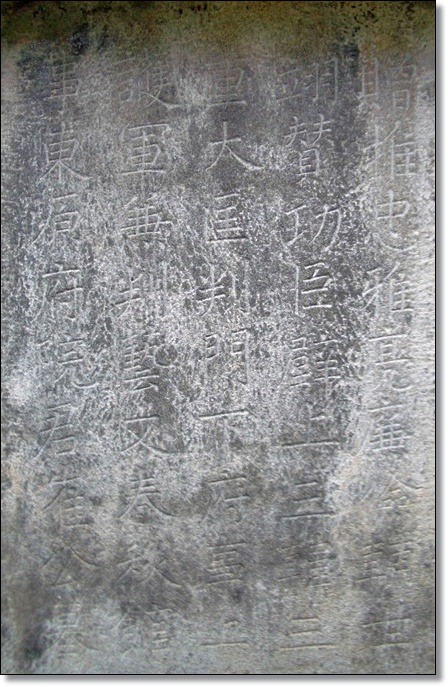 贈推忠雅亮廉儉輔世
翊贊功臣壁上三韓三
重大匡判門下府事上
護軍兼判藝文春秋館
事東原府院君崔公墓